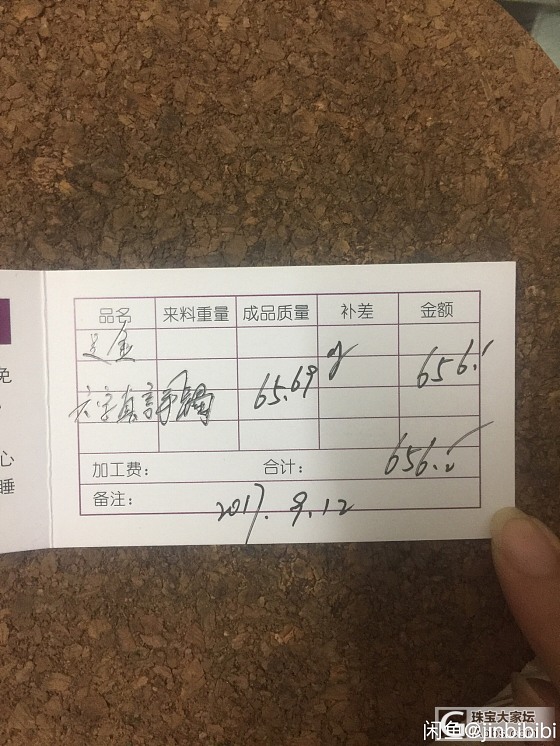 品名 来料重量 成品质量 补差 金额
足金
六字真言手镯 65.69 g 656.
加工费： 合计： 656.
备注： 2017.9.12
免
心
睡
珠宝大家坛
闲鱼@jinbibibi